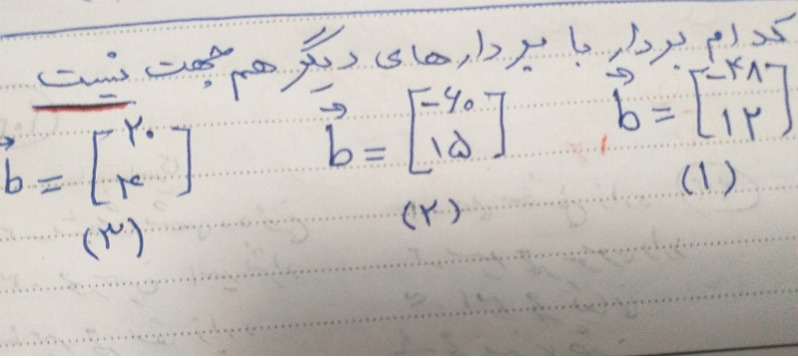 کدام بردار با بردارهای دیگر هم جهت نیست
b⃗ = [-۴۸ ۱۲] b⃗ = [-۶۰ ۱۵] b⃗ = [۲۰ ۴]
(۱) (۲) (۳)